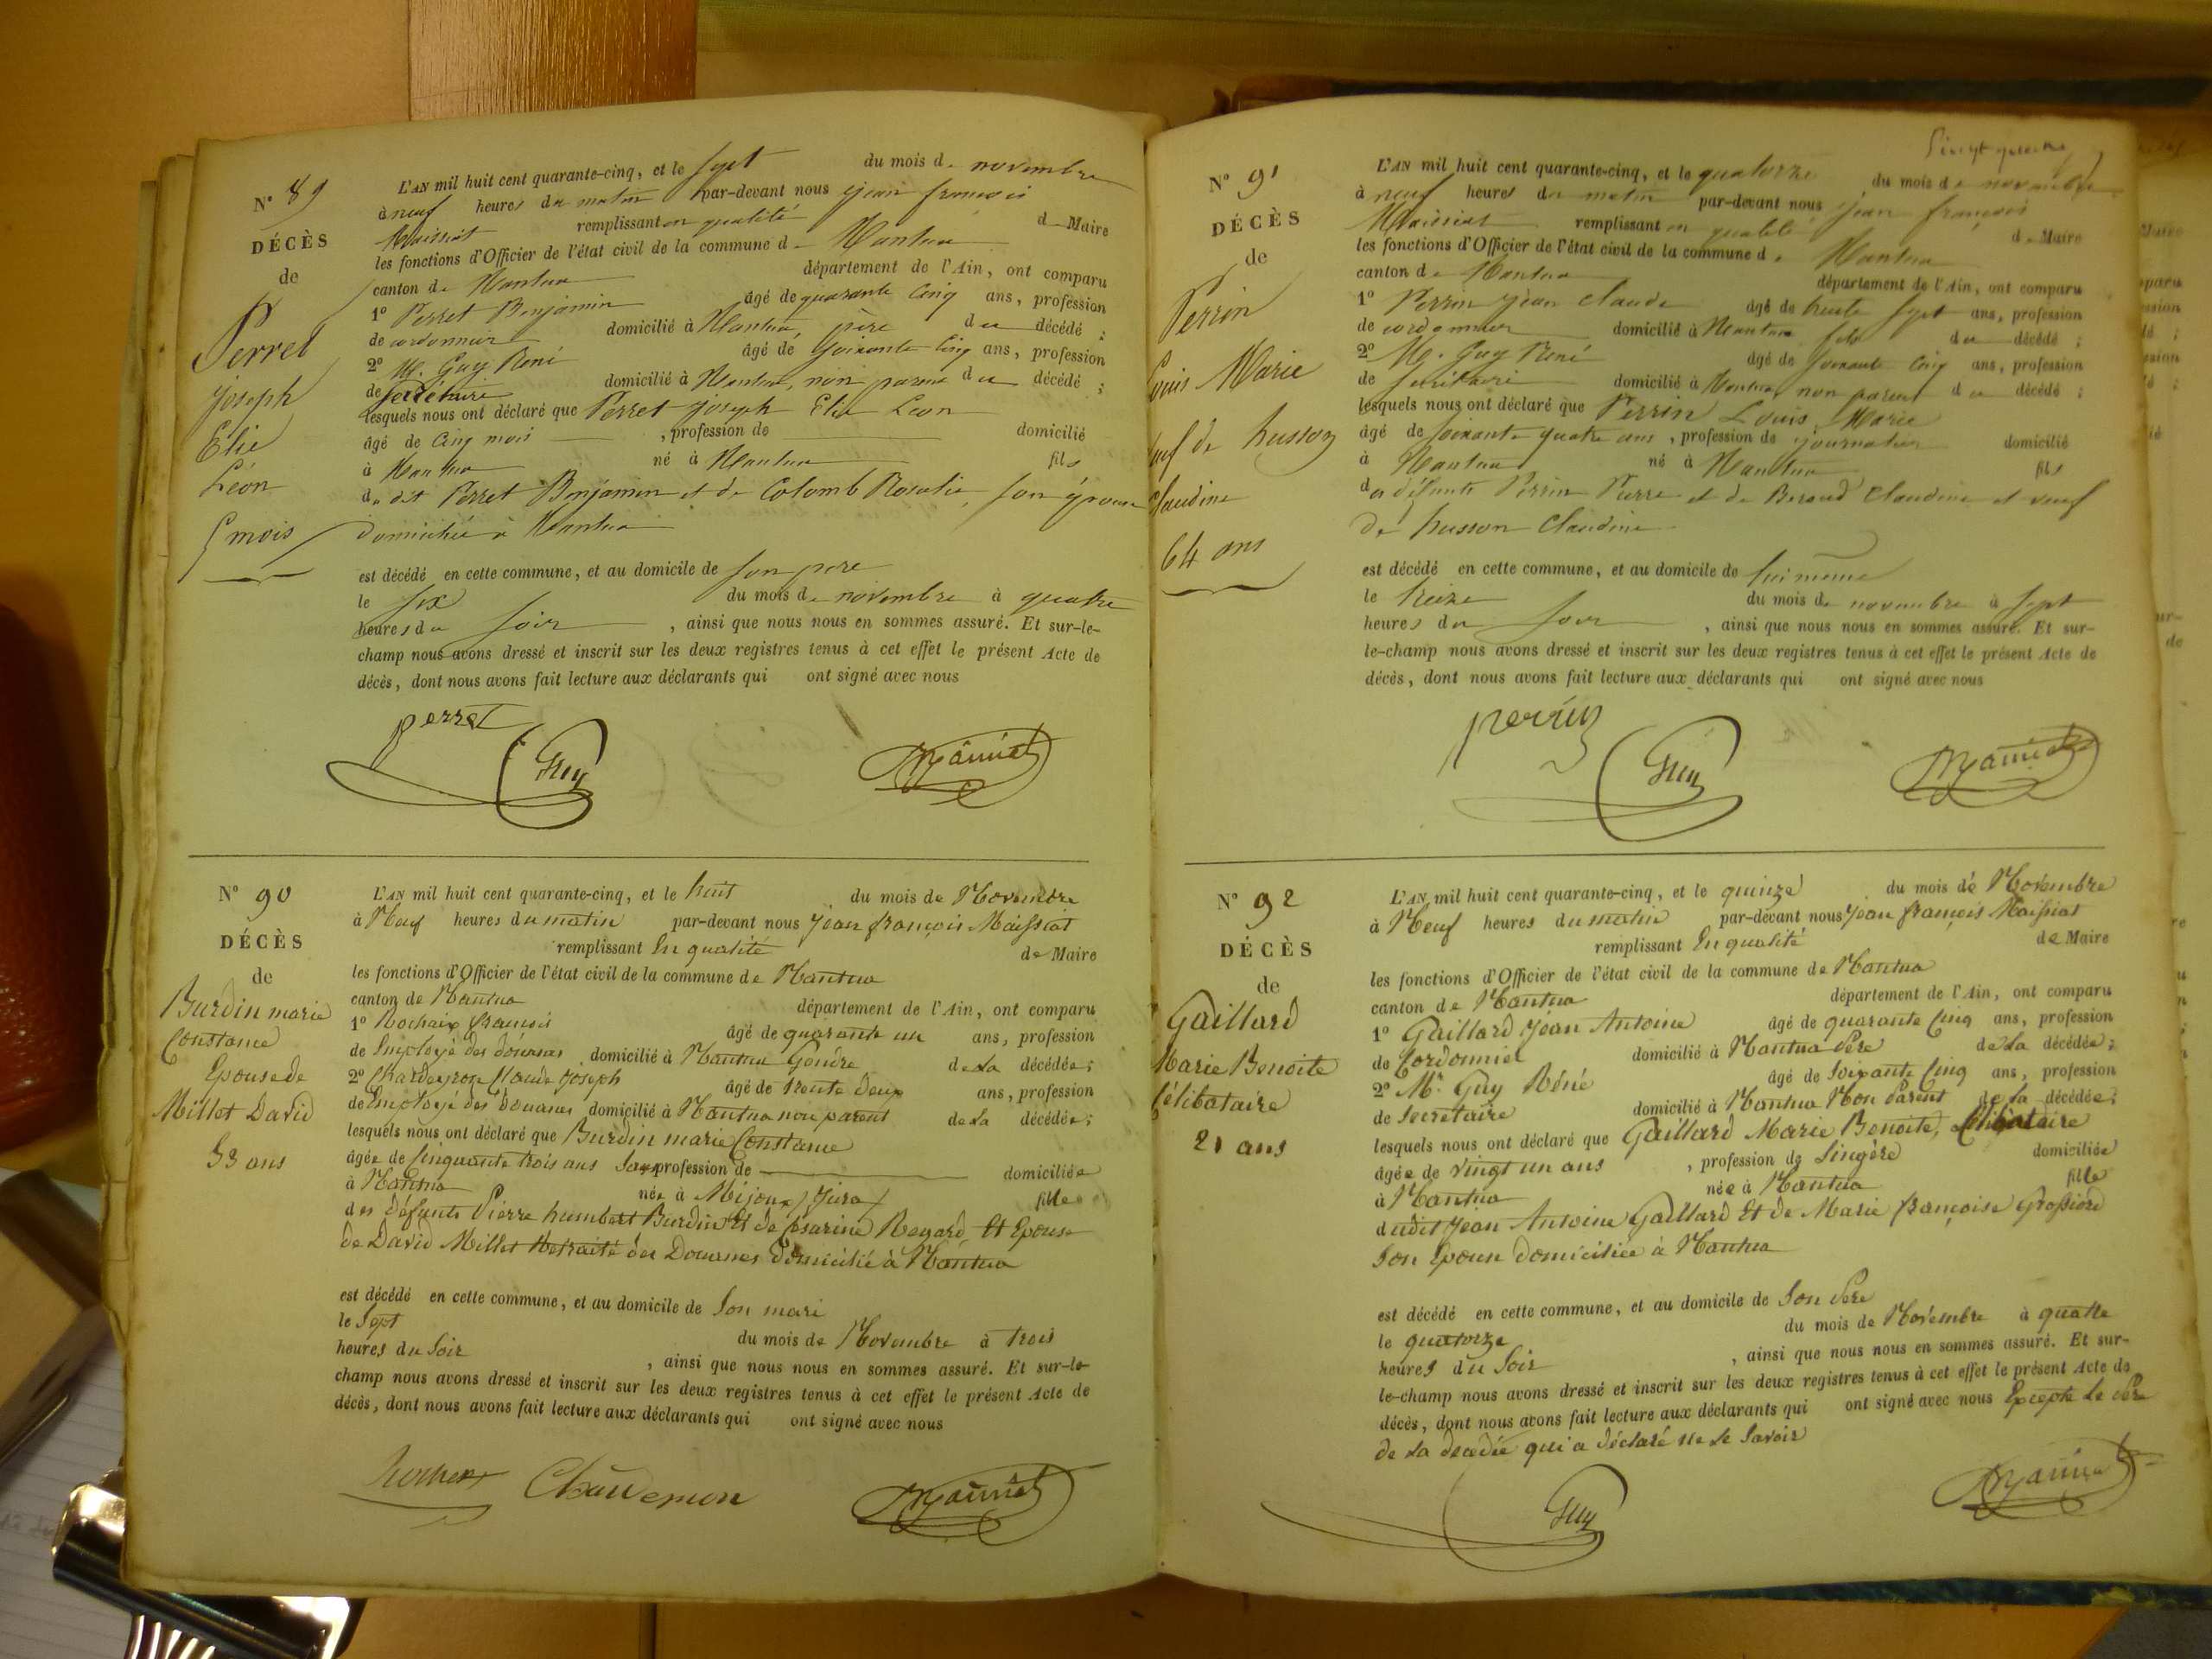 N° 89
DÉCÈS
de
Perret
Joseph
Elie
Léon
5 mois
L'AN mil huit cent quarante-cinq, et le sept du mois de novembre
à neuf heures du matin par-devant nous jean françois
Maissiat remplissant en qualité de Maire
les fonctions d'Officier de l'état civil de la commune de Nantua
canton de Nantua département de l'Ain, ont comparu
1° Perret Benjamin âgé de quarante cinq ans, profession
de cordonnier domicilié à Nantua, père du décédé ;
2° M. Guy René âgé de soixante cinq ans, profession
de secrétaire domicilié à Nantua, non parent du décédé ;
lesquels nous ont déclaré que Perret joseph Elie Léon
âgé de cinq mois , profession de domicilié
à Nantua né à Nantua fils
du dit Perret Benjamin et de Colomb Rosalie, son épouse
domiciliés à Nantua
est décédé en cette commune, et au domicile de son père
le six du mois de novembre à quatre
heures du soir , ainsi que nous nous en sommes assuré. Et sur-le-
champ nous avons dressé et inscrit sur les deux registres tenus à cet effet le présent Acte de
décès, dont nous avons fait lecture aux déclarants qui ont signé avec nous
perret Guy Maissiat
N° 90
DÉCÈS
de
Burdin marie
Constance
Epouse de
Millet David
53 ans
L'AN mil huit cent quarante-cinq, et le huit du mois de Novembre
à Neuf heures du matin par-devant nous Jean françois Maissiat
remplissant En qualité de Maire
les fonctions d'Officier de l'état civil de la commune de Nantua
canton de Nantua département de l'Ain, ont comparu
1° Rochaix françois âgé de quarante un ans, profession
de Employé des douanes domicilié à Nantua Gendre de La décédée ;
2° Claude Joseph âgé de trente deux ans, profession
de Employé des Douanes domicilié à Nantua non parent de La décédée ;
lesquels nous ont déclaré que Burdin marie Constance
âgée de Cinquante trois ans Sans profession de domiciliée
à Nantua née à Mijoux (Jura) fille
des défunts Pierre humbert Burdin Et de Césarine Regard, Et Epouse
de David Millet Retraité des Douanes domicilié à Nantua
est décédé en cette commune, et au domicile de Son mari
le Sept du mois de Novembre à trois
heures du Soir , ainsi que nous nous en sommes assuré. Et sur-le-
champ nous avons dressé et inscrit sur les deux registres tenus à cet effet le présent Acte de
décès, dont nous avons fait lecture aux déclarants qui ont signé avec nous
Maissiat
N° 91
DÉCÈS
de
Perrin
Louis Marie
veuf de husson
Claudine
64 ans
L'AN mil huit cent quarante-cinq, et le quatorze du mois de novembre
à neuf heures du matin par-devant nous jean françois
Maissiat remplissant en qualité de Maire
les fonctions d'Officier de l'état civil de la commune de Nantua
canton de Nantua département de l'Ain, ont comparu
1° Perrin jean Claude âgé de trente sept ans, profession
de cordonnier domicilié à Nantua fils du décédé ;
2° M. Guy René âgé de soixante cinq ans, profession
de secrétaire domicilié à Nantua, non parent du décédé ;
lesquels nous ont déclaré que Perrin Louis Marie
âgé de soixante quatre ans , profession de journalier domicilié
à Nantua né à Nantua fils
des défunts Perrin Pierre et de Claudine et veuf
de husson Claudine
est décédé en cette commune, et au domicile de lui même
le treize du mois de novembre à sept
heures du soir , ainsi que nous nous en sommes assuré. Et sur-
le-champ nous avons dressé et inscrit sur les deux registres tenus à cet effet le présent Acte de
décès, dont nous avons fait lecture aux déclarants qui ont signé avec nous
perrin Guy Maissiat
N° 92
DÉCÈS
de
Gaillard
Marie Benoite
Célibataire
21 ans
L'AN mil huit cent quarante-cinq, et le quinze du mois de Novembre
à Neuf heures du matin par-devant nous Jean françois Maissiat
remplissant En qualité de Maire
les fonctions d'Officier de l'état civil de la commune de Nantua
canton de Nantua département de l'Ain, ont comparu
1° Gaillard Jean Antoine âgé de quarante Cinq ans, profession
de Cordonnier domicilié à Nantua Père de La décédée ;
2° Mr. Guy Réné âgé de Soixante Cinq ans, profession
de Secretaire domicilié à Nantua Non Parent de La décédée ;
lesquels nous ont déclaré que Gaillard Marie Benoite, Célibataire
âgée de vingt un ans , profession de Lingère domiciliée
à Nantua née à Nantua fille
dudit Jean Antoine Gaillard Et de Marie françoise
Son Epouse domiciliée à Nantua
est décédé en cette commune, et au domicile de Son Père
le quatorze du mois de Novembre à quatre
heures du Soir , ainsi que nous nous en sommes assuré. Et sur-
le-champ nous avons dressé et inscrit sur les deux registres tenus à cet effet le présent Acte de
décès, dont nous avons fait lecture aux déclarants qui ont signé avec nous Excepté Le Père
de La décédée qui a déclaré ne Le Savoir
Guy Maissiat